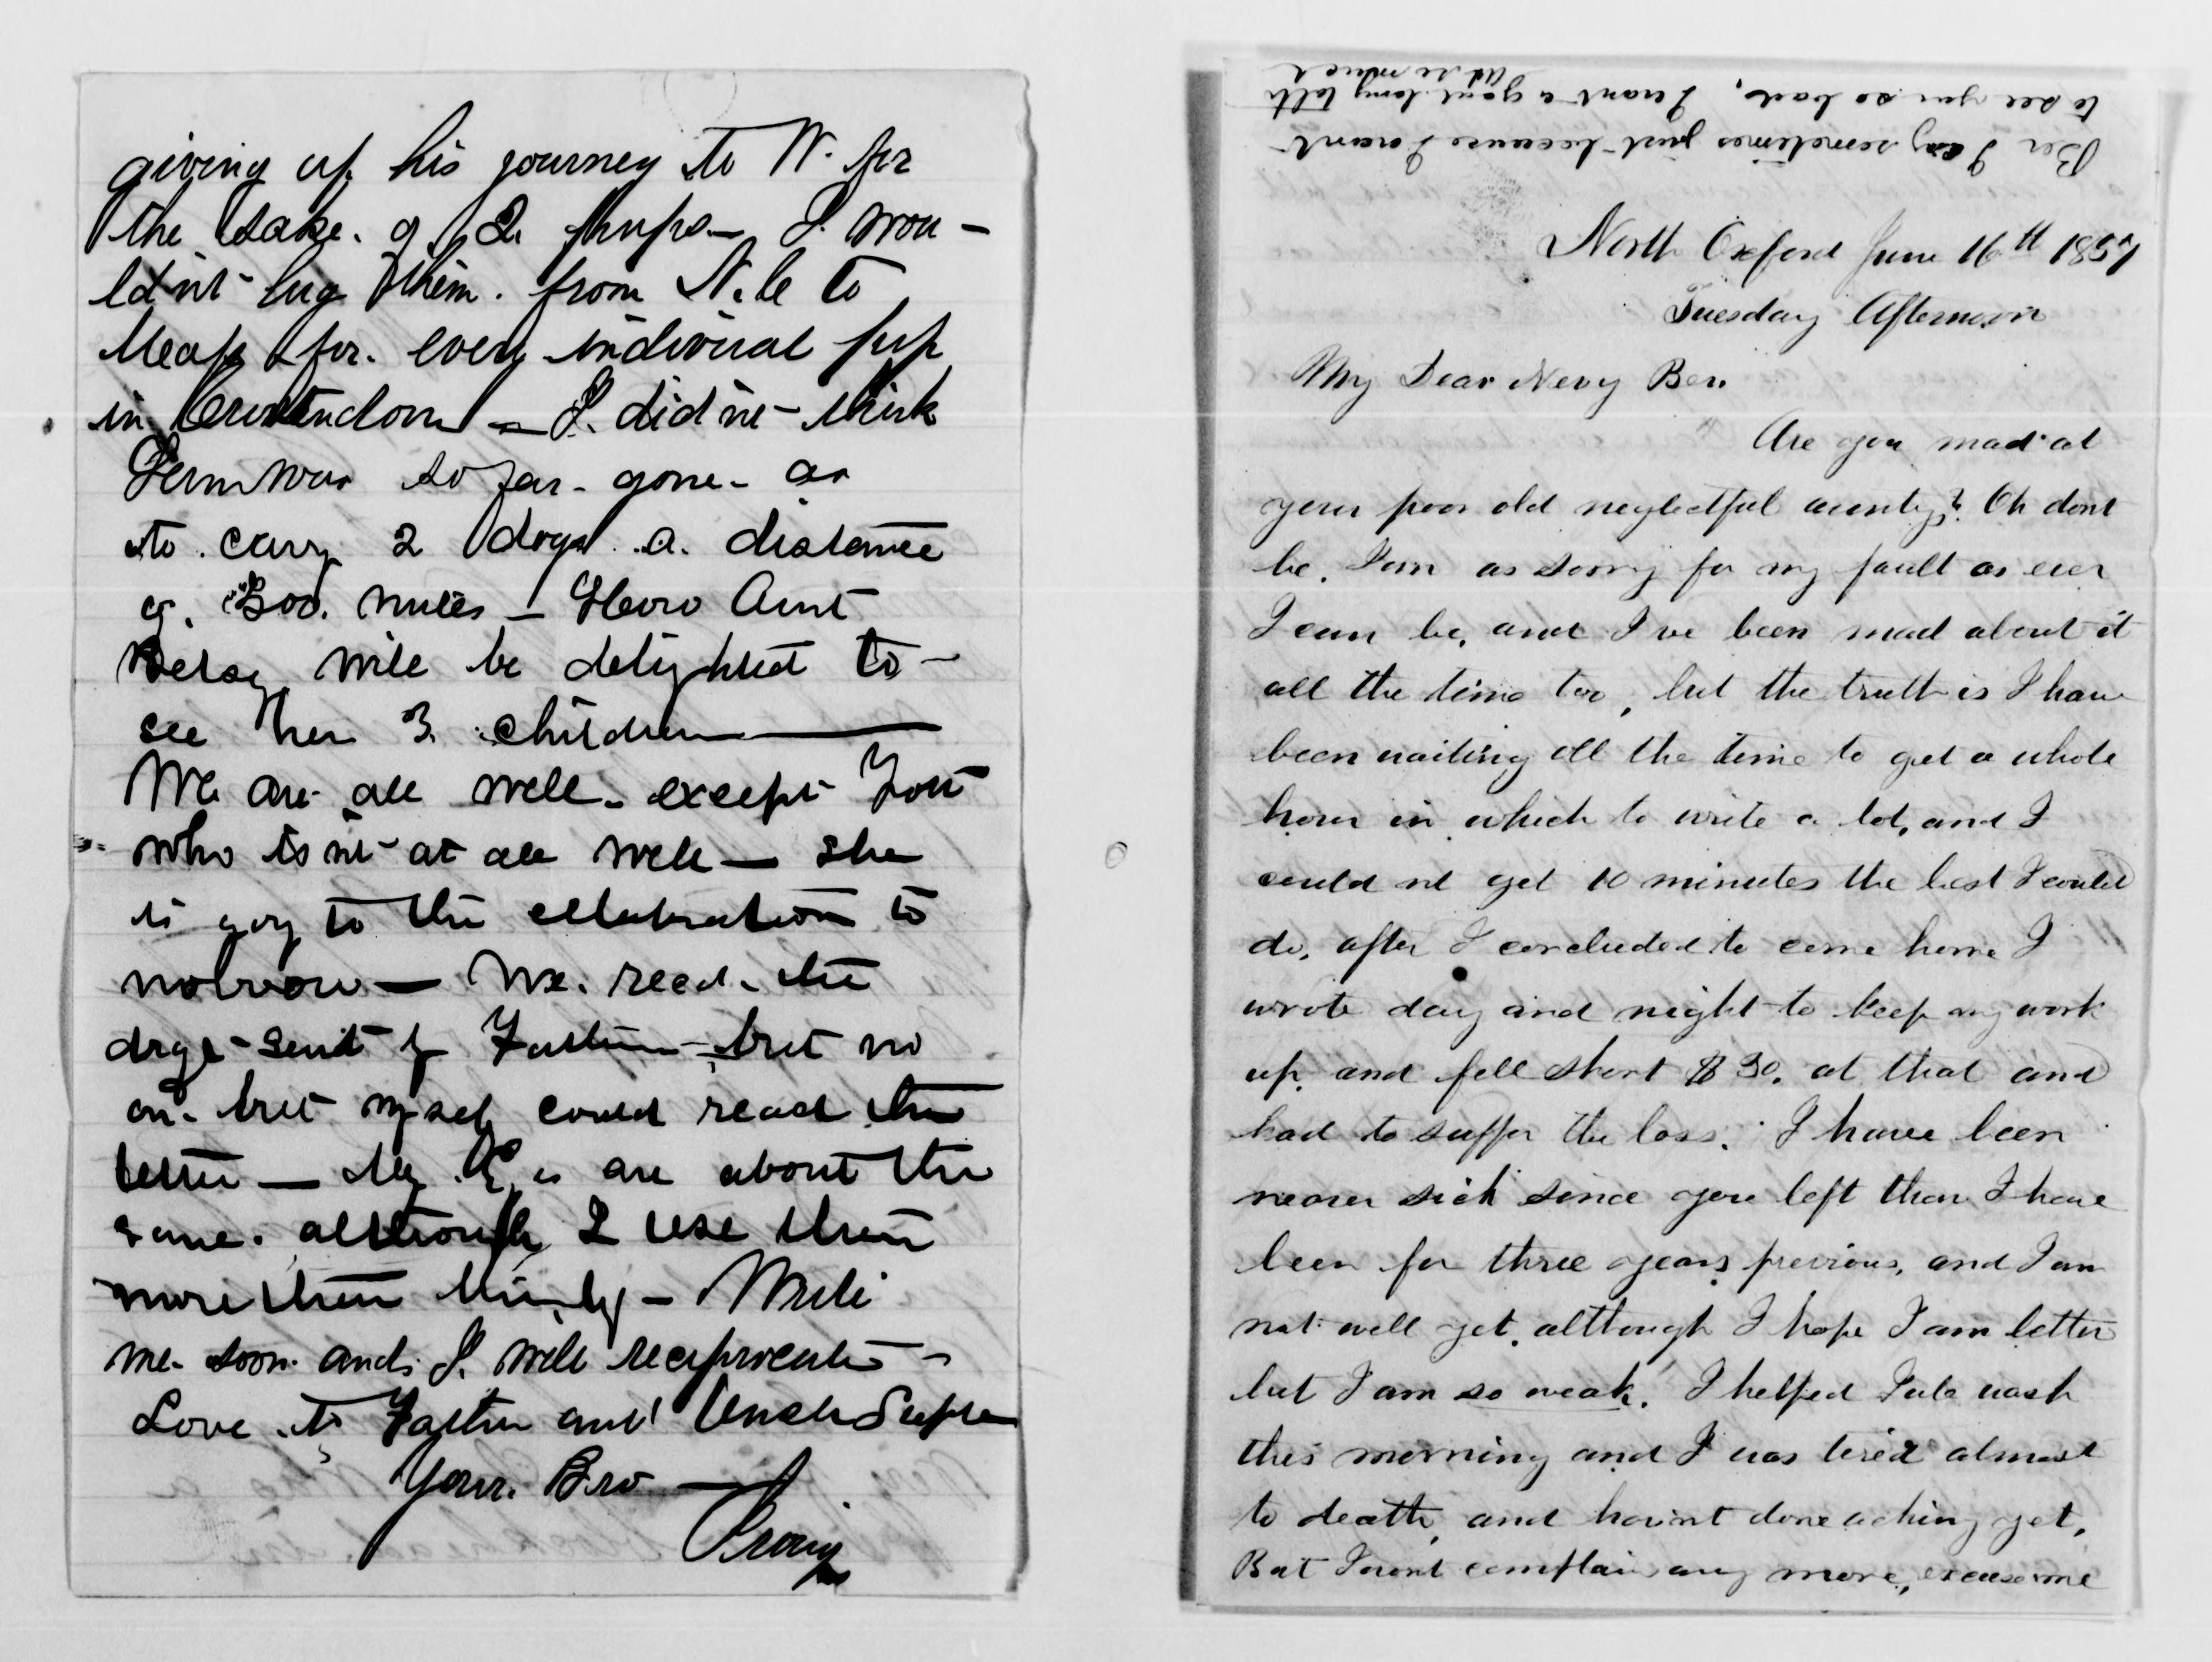 giving up his journey to W. for
the sake. of 2 pups — I. wou -
ldn't lug them. from N. C to
Mass for. every individual pup
in — I. did n't think
was so far - gone - as
to. carry 2 dogs. a. distance
of. miles — How Aunt
Betsey will be delighted to —
see her 3 children —
We are all well - except
who is n't at all well — she
is goy to the celebration to
morrow — We. recd. the
drgs - sent by — but no
one but myself could read the
letter — My are about the
same. although I use them
more than — Write
me soon and. I. will reciprocate -
Love. to and Uncle
Your. Bro —
Irving
Ber I cry sometimes just because I want
to see you so bad, I want a good long talk
North Oxford June 16th 1857
Tuesday Afternoon
My Dear Nevy Ber.
Are you mad at
your poor old neglectful aunty? Oh dont
be. I am as sorry for my fault as ever
I can be, and I've been mad about it
all the time too, but the truth is I have
been waiting all the time to get a whole
hour in which to write a lot, and I
could nt get 10 minutes the best I could
do, after I concluded to come home I
wrote day and night to keep my work
up. and fell short $30. at that and
had to suffer the loss. I have been
nearer sick since you left than I have
been for three years previous, and I am
not well yet, although I hope I am better
but I am so weak. I helped Jule wash
this morning and I was tired almost
to death, and havint done aching yet.
But I wont complain any more, excuse me